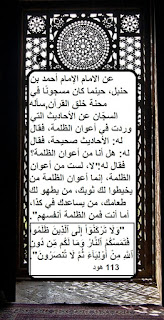 عن الامام الإمام أحمد بن
حنبل، حينما كان مسجونًا في
محنة خلق القرآن,سأله
السجّان عن الأحاديث التي
وردت في أعوان الظلمة، فقال
له: الأحاديث صحيحة، فقال
له: هل أنا من أعوان الظلمة؟
فقال له: "لا، لست من أعوان
الظلمة، إنما أعوان الظلمة من
يخيطوا لك ثوبك، من يطهو لك
طعامك، من يساعدك في كذا،
أما أنت فمن الظلمة أنفسهم".
"وَلَا تَرْكَنُوٓا۟ إِلَى ٱلَّذِينَ ظَلَمُوا۟
فَتَمَسَّكُمُ ٱلنَّارُ وَمَا لَكُم مِّن دُونِ
ٱللَّهِ مِنْ أَوْلِيَآءَ ثُمَّ لَا تُنصَرُونَ"
113 هود